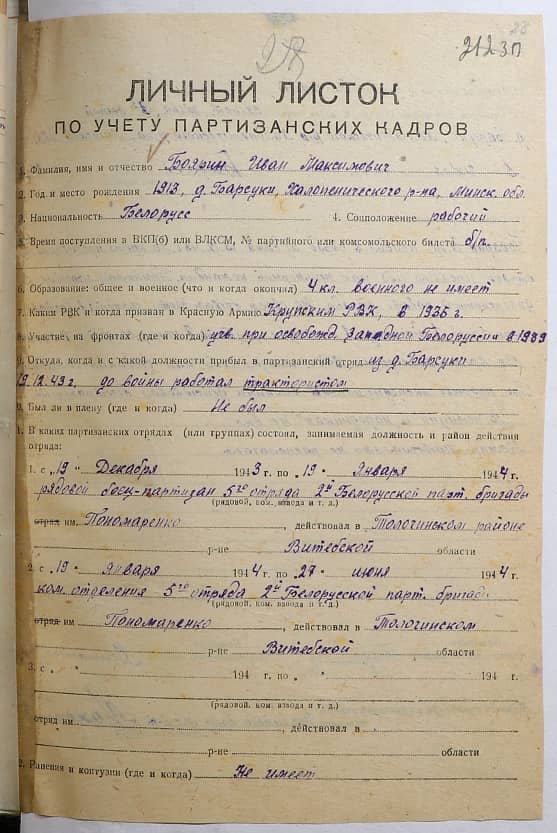 28
28
2123п
ЛИЧНЫЙ ЛИСТОК
ПО УЧЕТУ ПАРТИЗАНСКИХ КАДРОВ
1. Фамилия, имя и отчество Боярин Иван Максимович
2. Год и место рождения 1913, д. Барсуки, Халопенического р-на, Минск. обл.
3. Национальность Белорусс 4. Соцположение рабочий
5. Время поступления в ВКП(б) или ВЛКСМ, № партийного или комсомольского билета б/п.
6. Образование: общее и военное (что и когда окончил) 4 кл. военного не имеет
7. Каким РВК и когда призван в Красную Армию Крупским РВК, в 1935 г.
8. Участие на фронтах (где и когда) учв. при освобожд. Западной Белоруссии в 1939
9. Откуда, когда и с какой должности прибыл в партизанский отряд из д. Барсуки
19.12.43 г. до войны работал трактористом
0. Был ли в плену (где и когда) Не был
1. В каких партизанских отрядах (или группах) состоял, занимаемая должность и район действия
отряда:
1. с „19 " Декабря 1943 г. по „19 " Января 1944 г.
рядовой боец-партизан 5го отряда 2й Белорусской парт. бригады
(рядовой, ком. взвода и т. д.)
отряд им. Пономаренко, действовал в Толочинском районе
р-не Витебской области
2. с „19 " Января 1944 г. по „28 " июня 1944 г.
ком. отделения 5го отряда 2й Белорусской парт. бригад
(рядовой, ком. взвода и т. д.)
отряд им. Пономаренко, действовал в Толочинском
р-не Витебской области
3. с „ " 194 г. по „ " 194 г.
(рядовой, ком. взвода и т. д.)
отряд им. , действовал в
р-не области
2. Ранения и контузии (где и когда) Не имеет